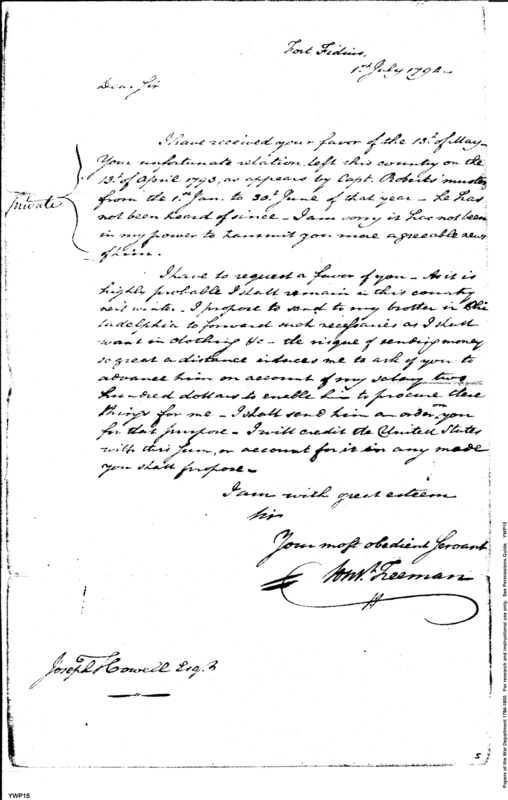 Fort Fidius,
1st July 1794 -
Dear Sir
I have received your favor of the 13th of May -
Your unfortunate relation left this country on the
13th of April 1793, as appears by Capt. Roberts muster
from the 1st Jan. to 30th June of that year - he has
not been heard of since - I am sorry it has not been
in my power to transmit you more agreeable news
of him.
Private
I have to request a favor of you - As it is
highly probable I shall remain in this country
next winter - I propose to send to my brother in Phi
ladelphia to forward such necessaries as I shall
want in clothing &c - the risque of sending money
so great a distance induces me to ask of you to
advance him on account of my salary two
hundred dollars to enable him to procure these
things for me - I shall send him an order on you
for that purpose - I will credit the United States
with this sum, or account for it in any mode
you shall propose -
I am with great esteem
Sir
Your most obedient Servant
Const. Freeman
Joseph Howell Esqr
5
YWP15
Papers of the War Department 1784-1800. For research and instructional use only. See Permissions Guide. YWP15